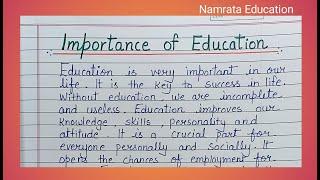 Namrata Education
Importance of Education
Education is very important in our
life. It is the key to success in life.
Without education, we are incomplete
and useless. Education improves our
knowledge, skills, personality and
attitude. It is a crucial part for
everyone personally and socially. It
opens the chances of employment for